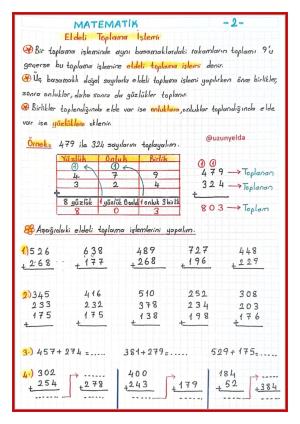 MATEMATİK -2-
Eldeli Toplama İşlemi
Bir toplama işleminde aynı basamaklardaki rakamların toplamı 9'u
geçerse bu toplama işlemine eldeli toplama işlemi denir.
Üç basamaklı doğal sayılarla eldeli toplama işlemi yapılırken önce birlikler,
sonra onluklar, daha sonra da yüzlükler toplanır.
Birlikler toplandığında elde var ise onluklara, onluklar toplandığında elde
var ise yüzlüklere eklenir.
@uzunyelda
Örnek: 479 ile 324 sayılarını toplayalım.
Yüzlük Onluk Birlik
1 1
4 7 9
3 2 4
8 yüzlük 0 onluk 1 onluk 3 birlik
8 0 3
1 1
479 → Toplanan
324 → Toplanan
+
803 → Toplam
Aşağıdaki eldeli toplama işlemlerini yapalım.
1-) 526 638 489 727 448
+268 +177 +268 +196 +229
2-) 345 416 510 252 308
233 232 378 234 203
+175 +175 +138 +198 +176
3-) 457+274=...... 381+279=...... 529+175=......
4-) 302 400 184
+254 +278 +243 +179 +52 +384